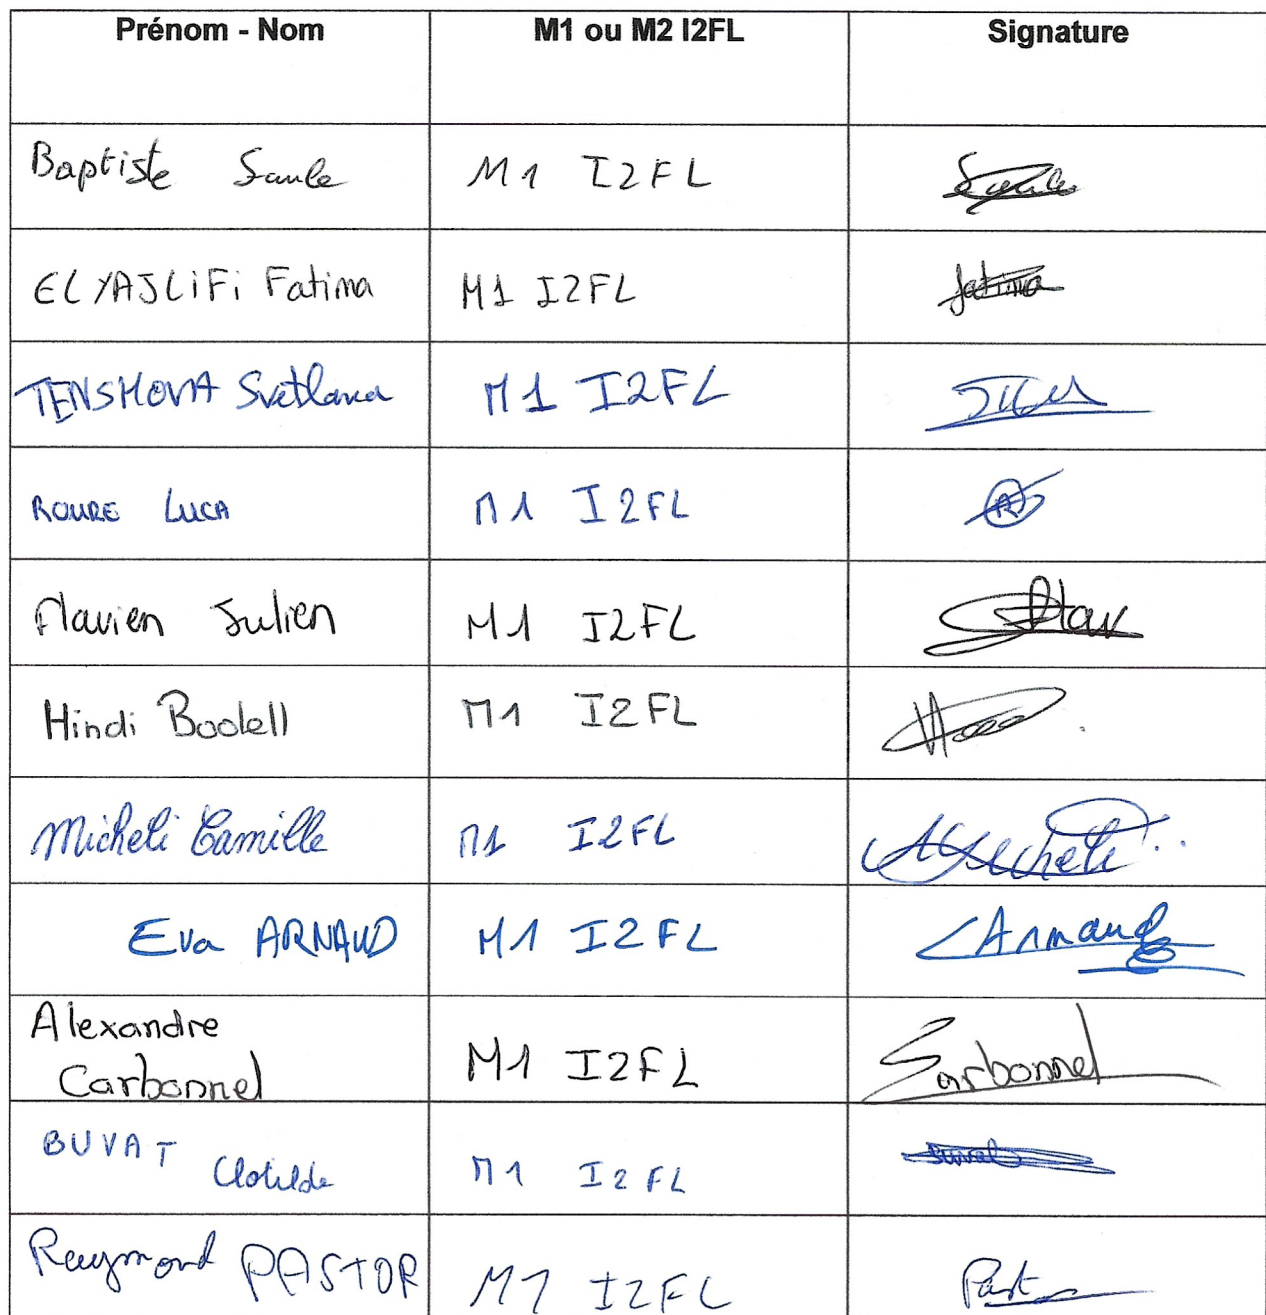 Prénom - Nom M1 ou M2 I2FL Signature
Baptiste Saule M1 I2FL
ELYAJLiFi Fatima M1 I2FL fatima
TENSMOVA Svetlana M1 I2FL
ROURE LUCA M1 I2FL
Flavien Julien M1 I2FL
Hindi Boolell M1 I2FL
Micheli Camille M1 I2FL Micheli
Eva ARNAUD M1 I2FL Arnaud
Alexandre
Carbonnel M1 I2FL Carbonnel
BUVAT Clotilde M1 I2FL
Raymond PASTOR M1 I2FL